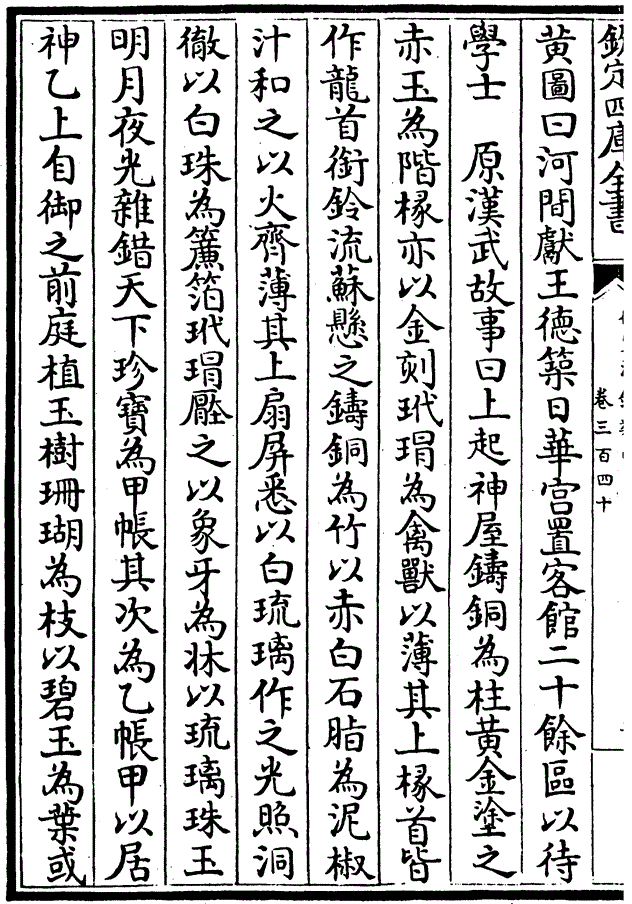 欽定四庫全書
卷三百四十
黄圖曰河間獻王德築日華宫置客館二十餘區以待
學士　原漢武故事曰上起神屋鑄銅為柱黄金塗之
赤玉為階椽亦以金刻玳瑁為禽獸以薄其上椽首皆
作龍首銜鈴流蘇懸之鑄銅為竹以赤白石脂為泥椒
汁和之以火齊薄其上扇屏悉以白琉璃作之光照洞
徹以白珠為簾箔玳瑁壓之以象牙為牀以琉璃珠玉
明月夜光雜錯天下珍寶為甲帳其次為乙帳甲以居
神乙上自御之前庭植玉樹珊瑚為枝以碧玉為葉或